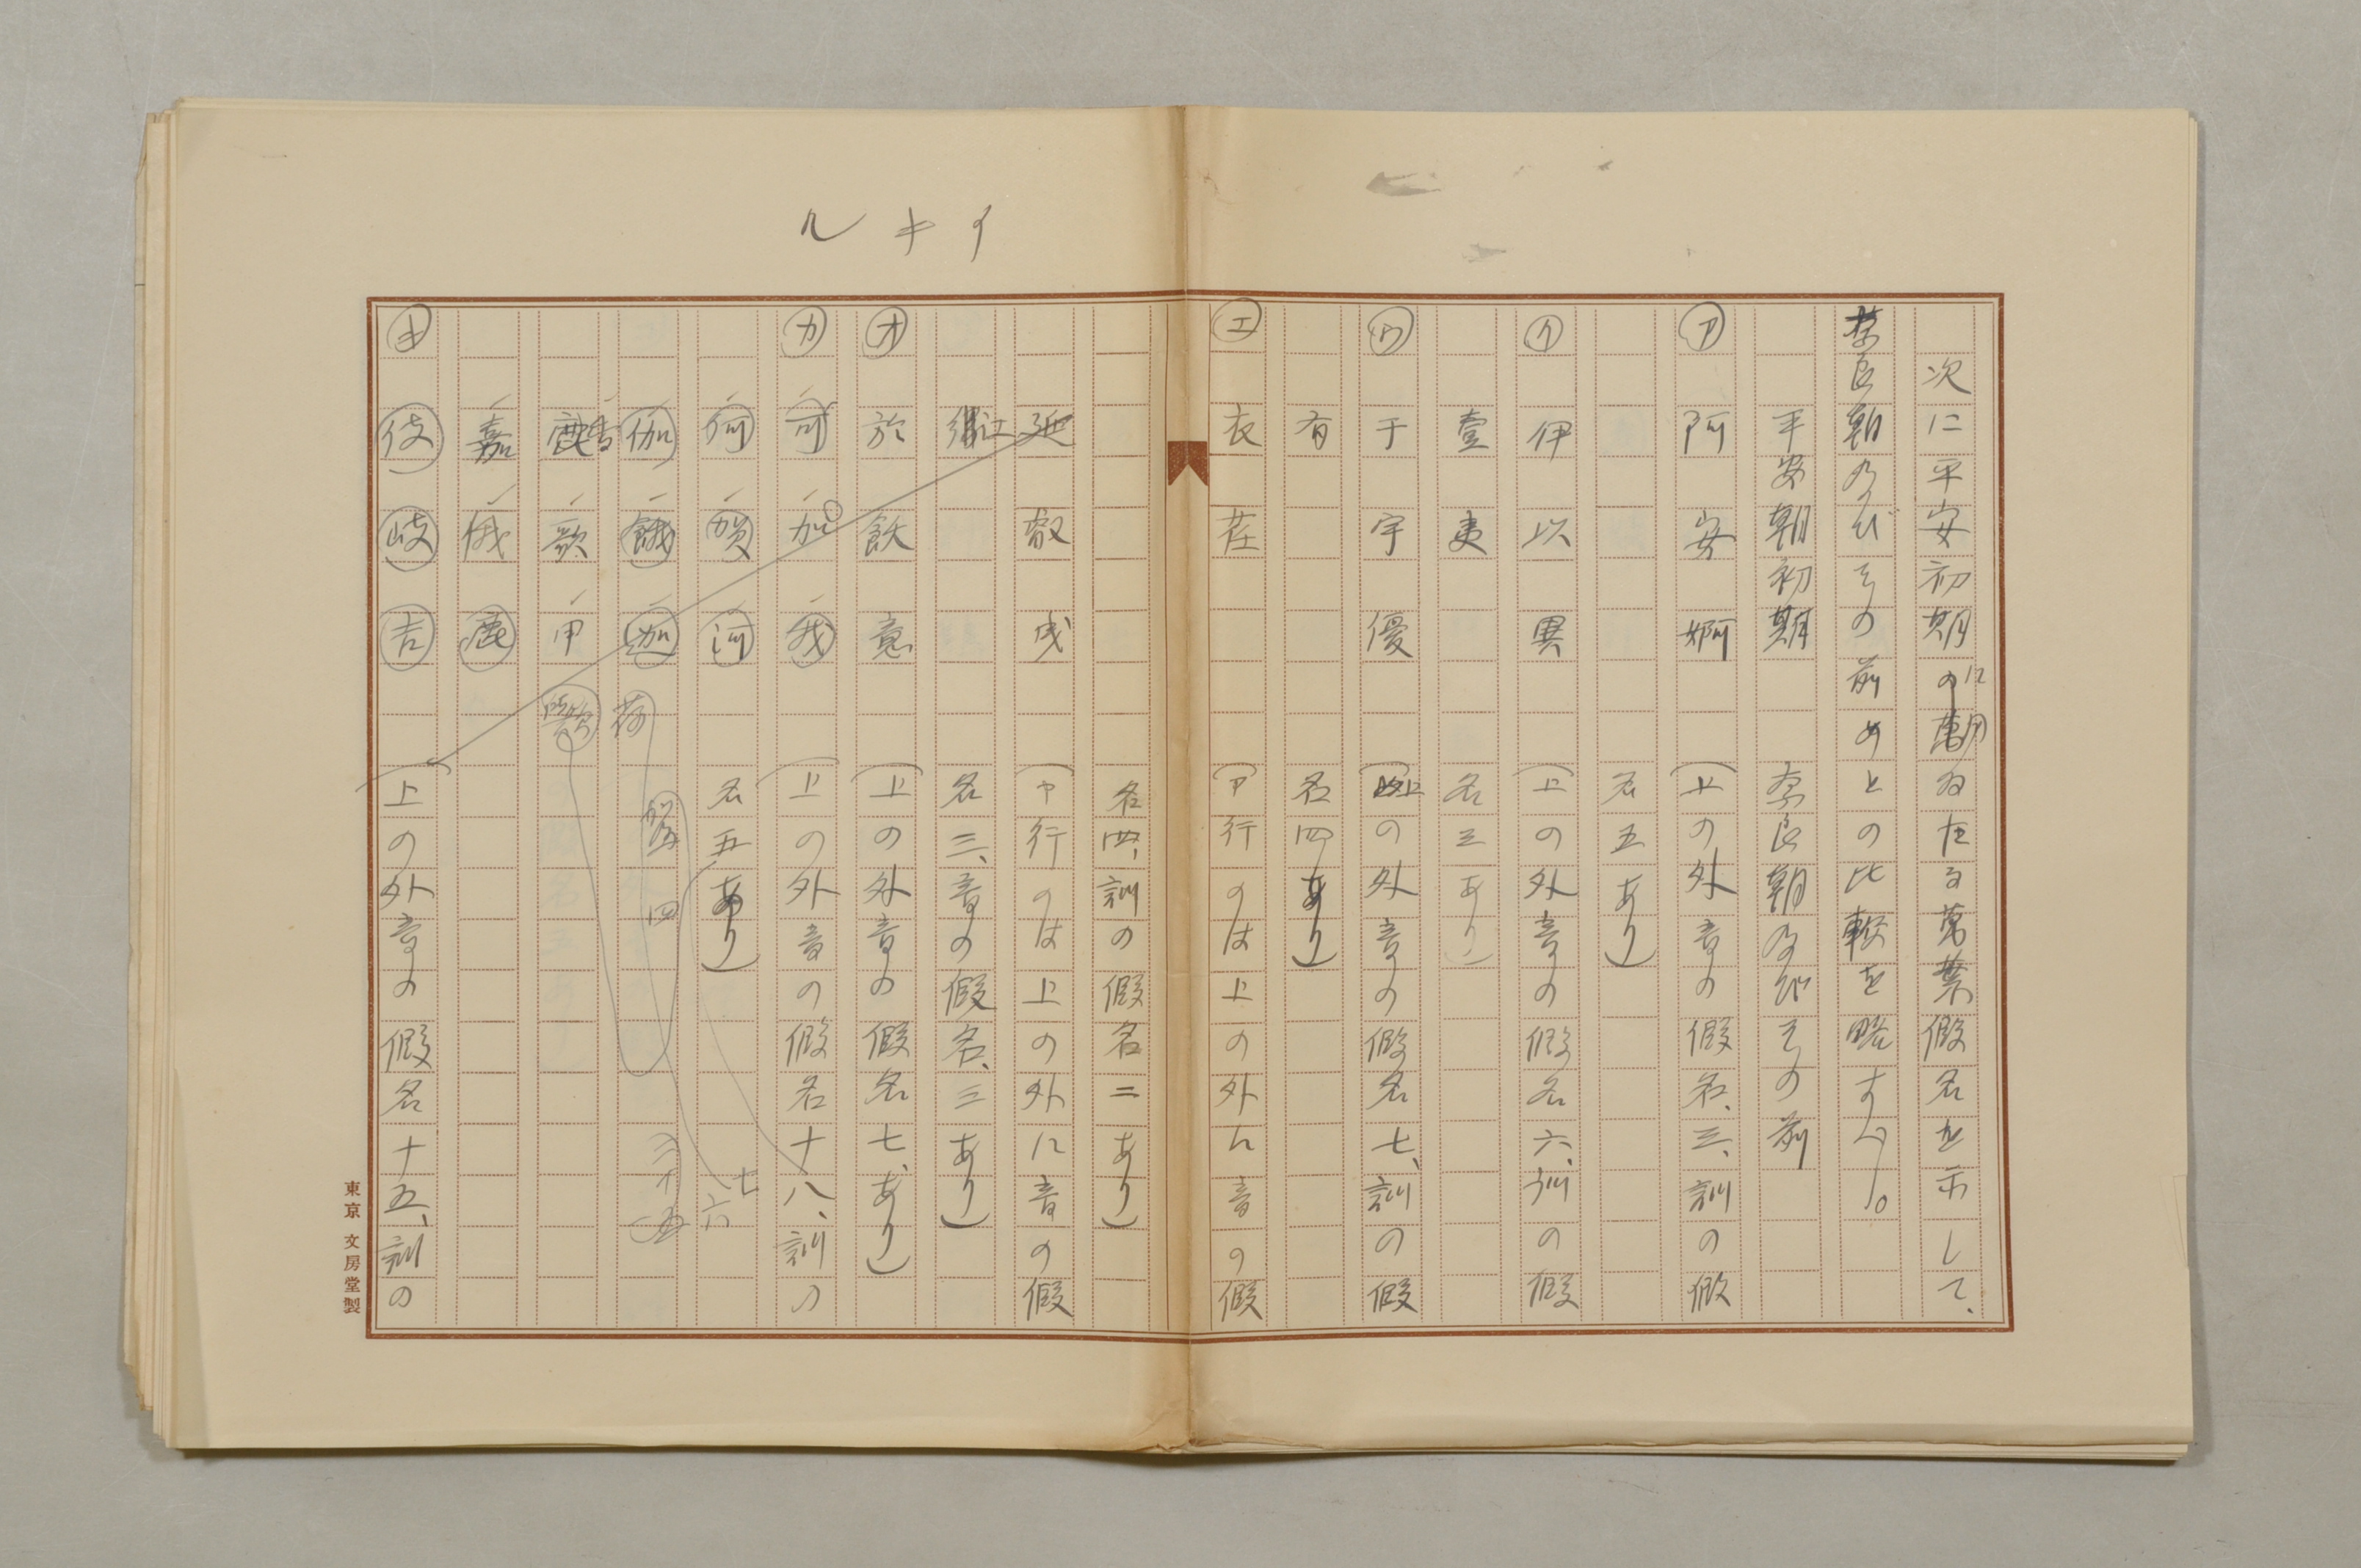 次に平安初期に用ゐたる萬葉假名を示して、
奈良朝及びその前のとの比較を略すべし。
平安朝初期 奈良朝及びその前
ア 阿 安 婀 (上の外音の假名、三、訓の假
名五あり)
イ 伊 以 異 (上の外音の假名六、訓の假
壹 夷 名三あり)
ウ 于 宇 優 (上の外音の假名七、訓の假
有 名四あり)
エ 衣 荏 (ア行のは上の外に音の假
名四、訓の假名二あり)
延 叡 曳 (ヤ行のは上の外に音の假
江 名三、音の假名、三あり)
オ 於 飫 意 (上の外音の假名七、あり)
カ 可 加 我 (上の外音の假名十八、訓の
何 賀 河 名五あり)
伽 餓 迦 荷
香 歌 甲
嘉 俄 鹿
キ 伎 岐 吉 (上の外音の假名十五、訓の
イ キ ル
七
六
四
東京 文房堂製